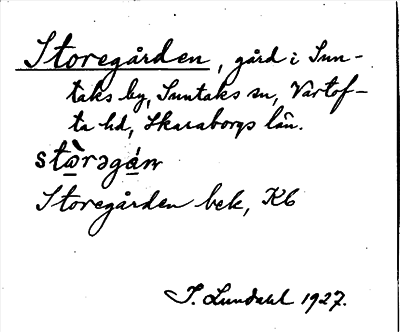 Storegården, gård i Sun-
taks by, Suntaks sn, Vartof-
ta hd, Skaraborgs län.
Storegården bek, Kb
I. Lundahl 1927.